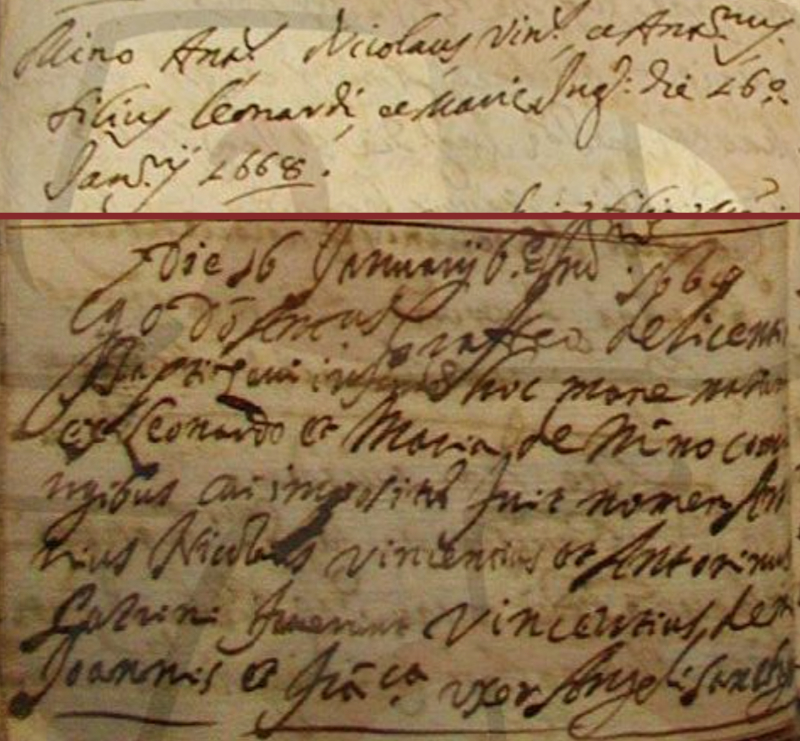 Mino Ant.s Nicolaus Vin.s et Ant.nus
filius Leonardi, et Mariæ Jug: die 16.o
Jan.rij 1668.
Die 16 Januarij 6.e Ind. 1668
Ego D. Graffeo de licentia
Baptizavi hoc mane natum
ex Leonardo et Maria de Mino con
iugibus cui impositũ fuit nomen Ant
nius Nicolaus Vincentius et Antoninus
Patrini fuerunt Vincentius de
Joannis et uxor Angeli